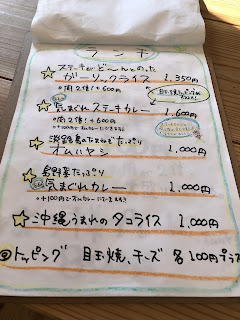 ランチ
ステーキがど〜んとのった
ガーリックライス 1,350円
※肉2倍！+600円
気まぐれステーキカレー 1,600円
※肉2倍！+600円
淡路島のたまねぎたっぷり
オムハヤシ 1,000円
島野菜たっぷり
気まぐれカレー 1,000円
沖縄うまれのタコライス 1,000円
トッピング 目玉焼、チーズ 各100円プラス